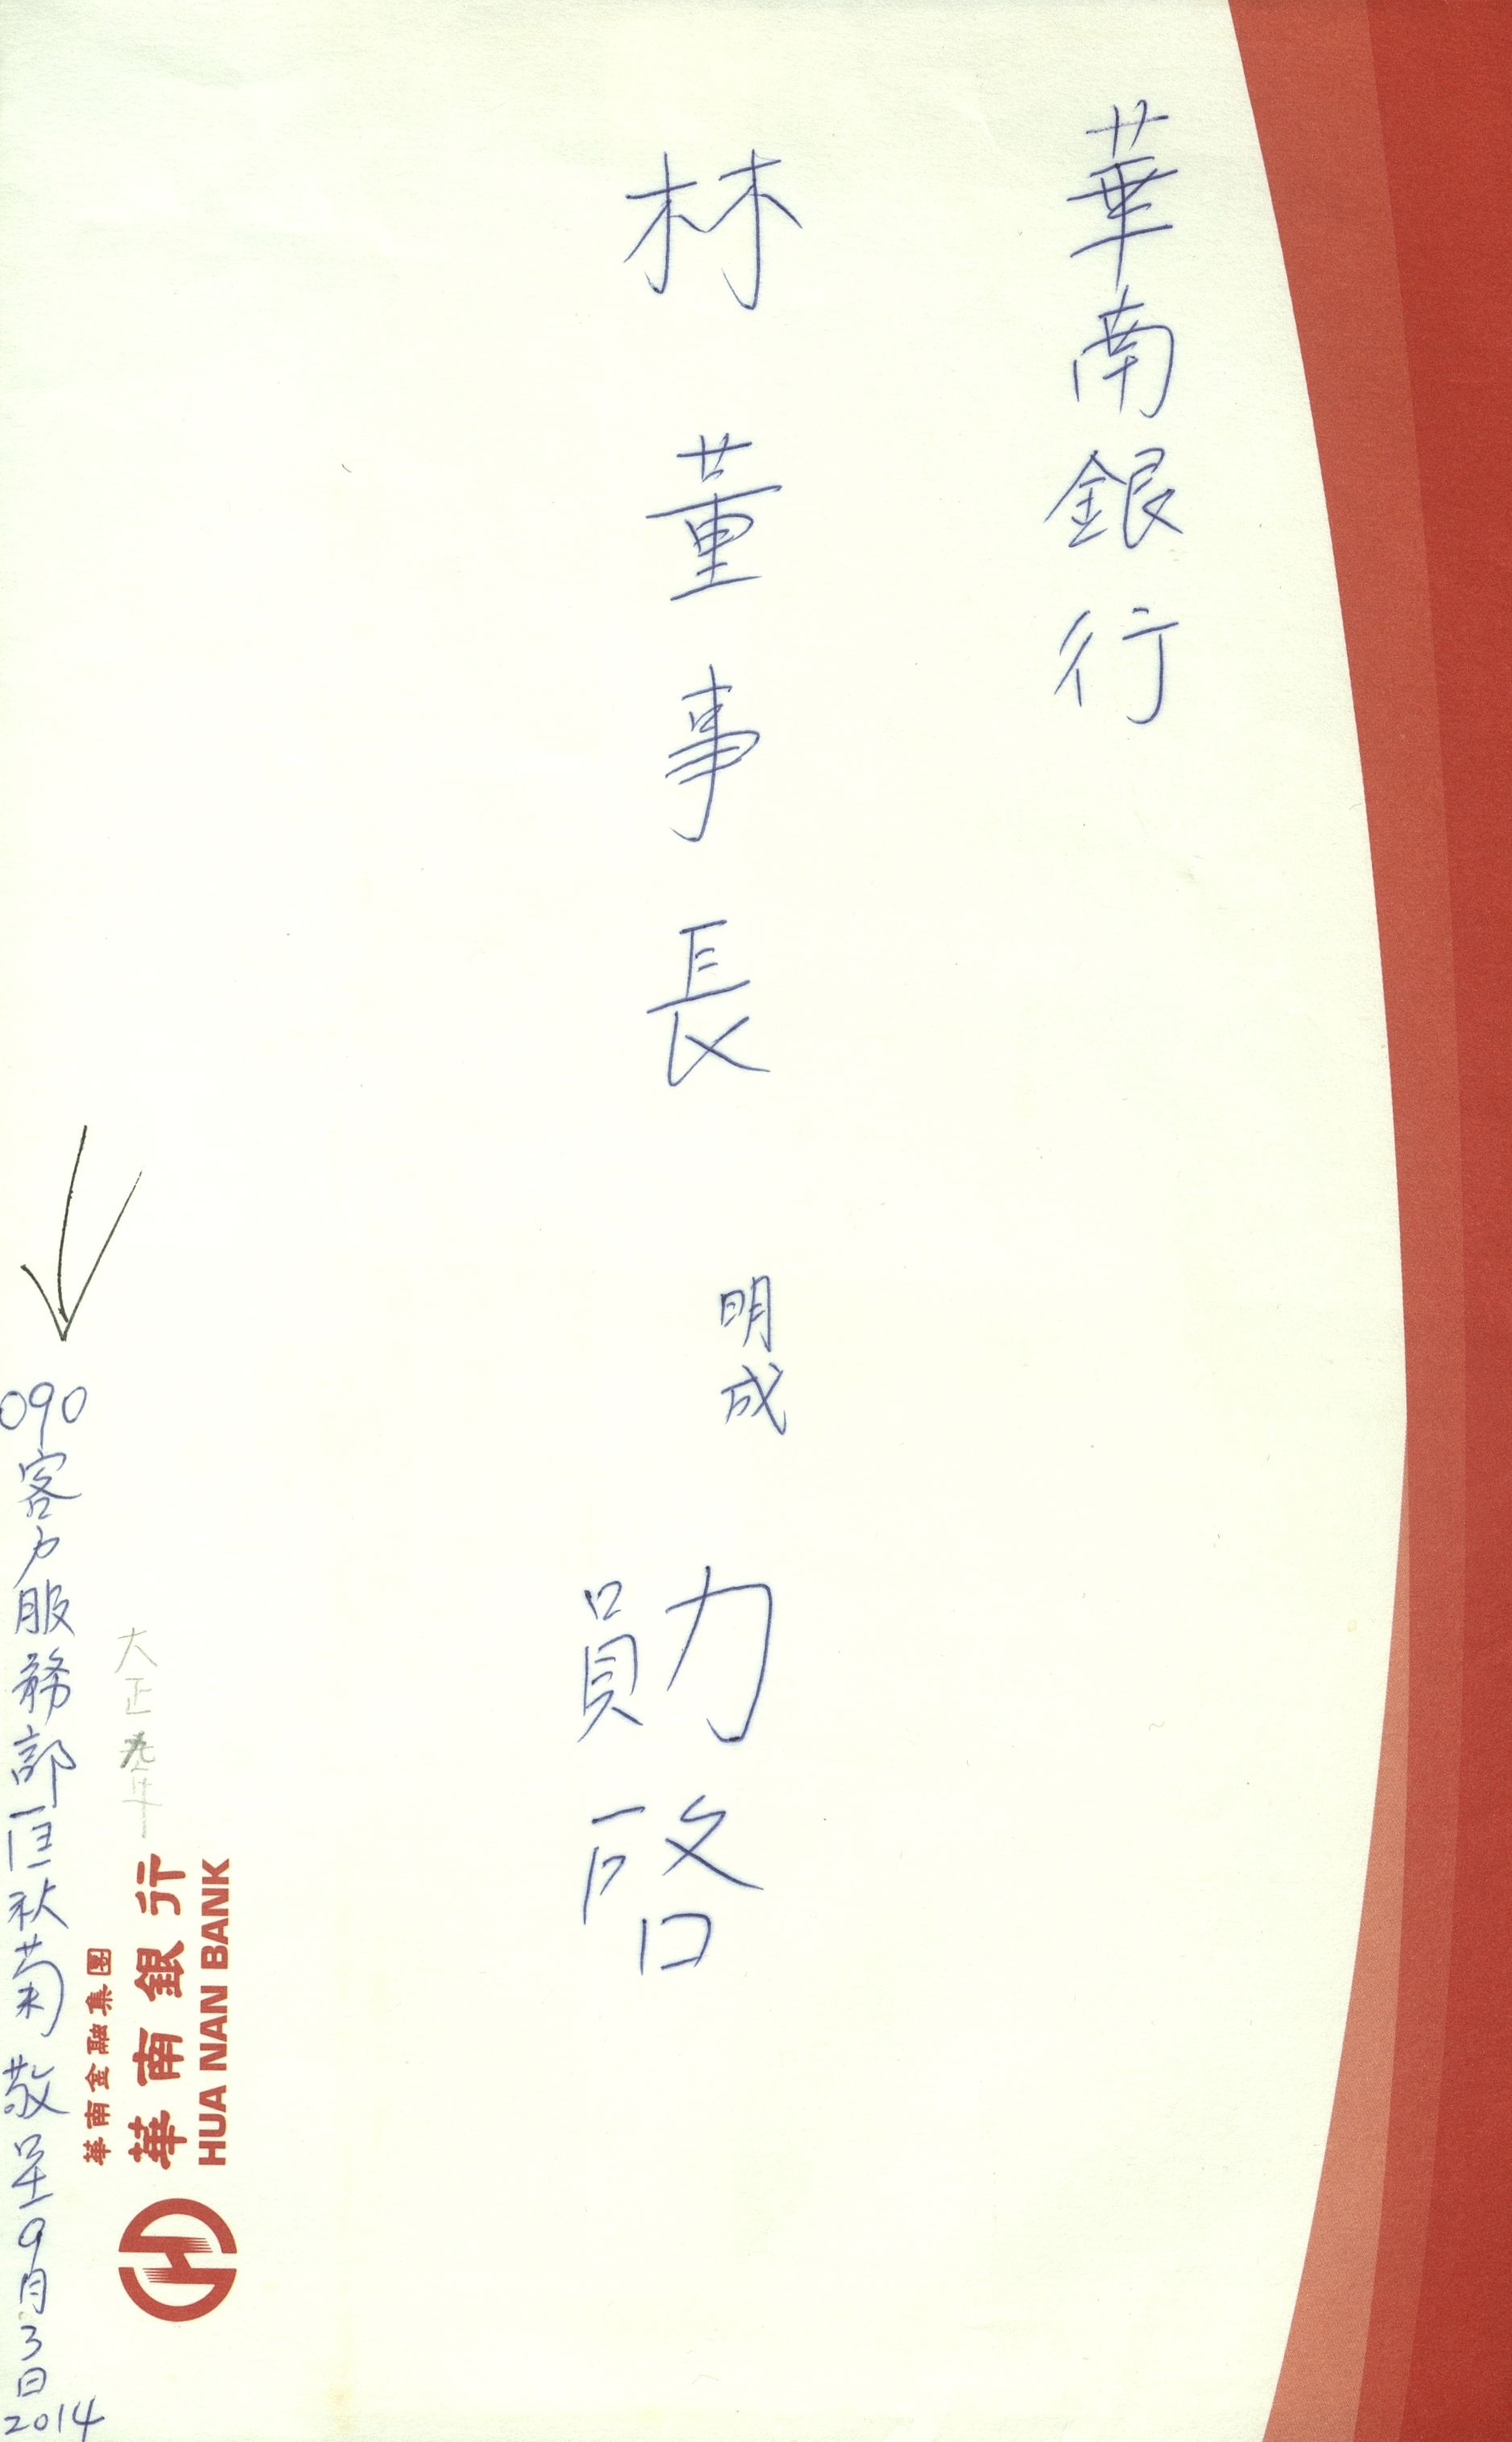 華南銀行
林董事長 明成 勛啓
大正九年
090客戶服務部 秋菊敬呈9月3日
2014
華南金融集團
華南銀行
HUA NAN BANK